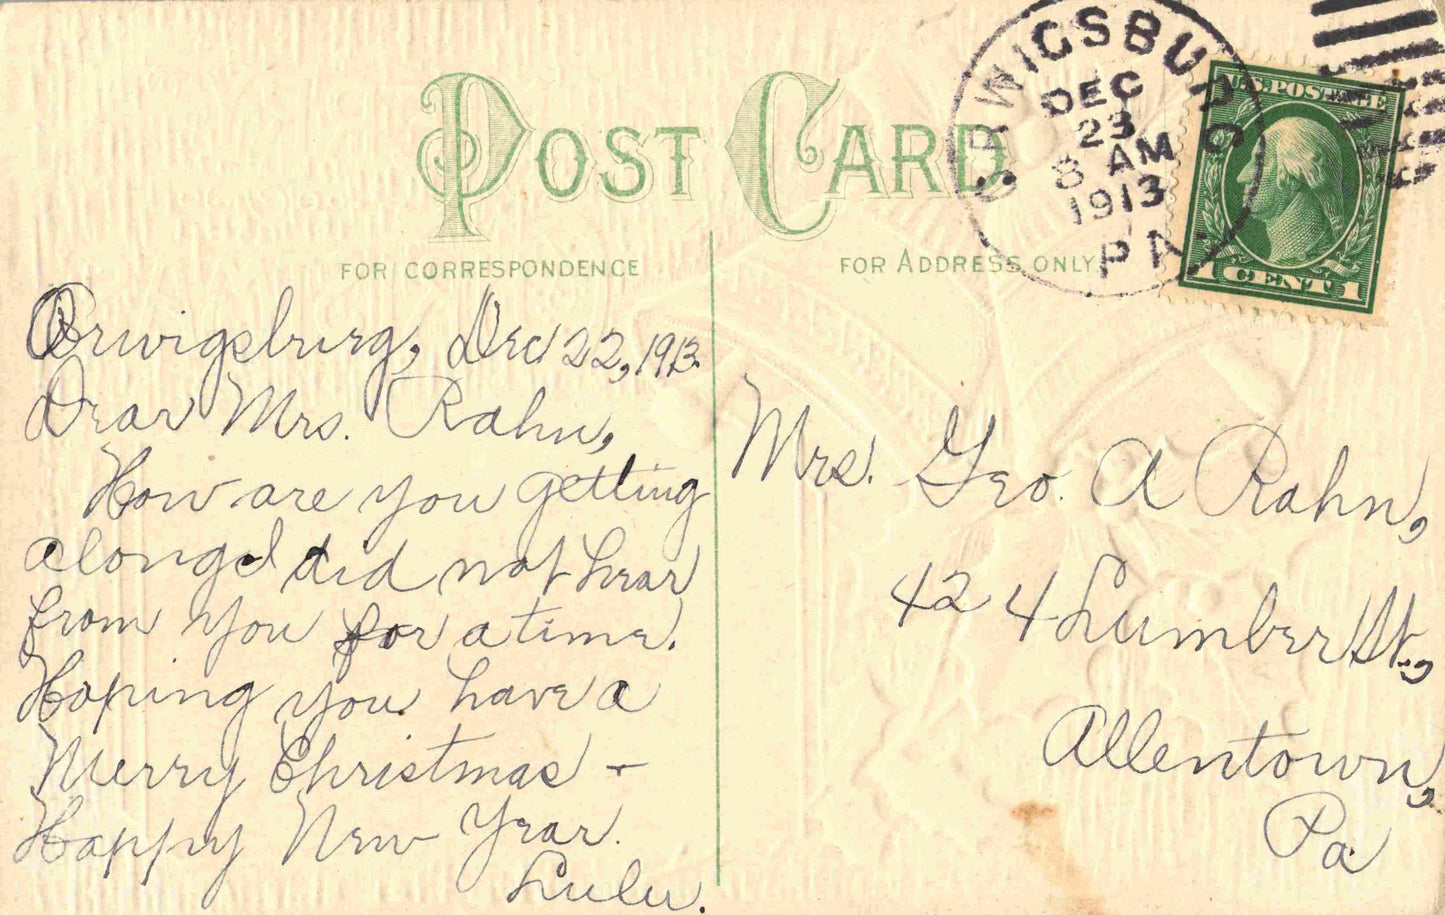 POST CARD
FOR CORRESPONDENCE
FOR ADDRESS ONLY
ORWIGSBURG
DEC
23
8 AM
1913
PA.
U.S. POSTAGE
1 CENT 1
Orwigsburg, Dec 22, 1913.
Dear Mrs. Rahn,
How are you getting
along I did not hear
from you for a time.
Hoping you have a
Merry Christmas +
Happy New Year.
Lulu.
Mrs. Geo. A Rahn,
424 Lumber St.,
Allentown,
Pa